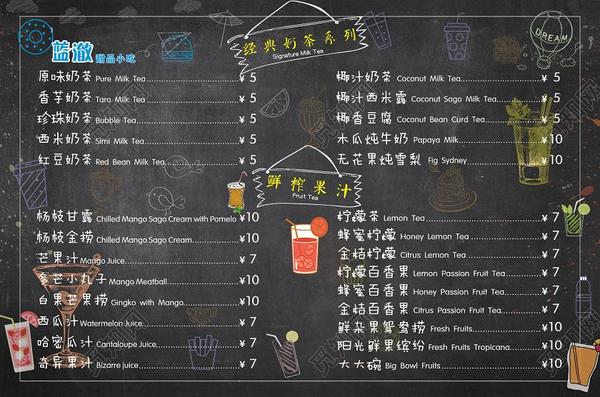 蓝澈 甜品小吃
经典奶茶系列
Signature Milk Tea
DREAM
原味奶茶 Pure Milk Tea ¥ 5
香芋奶茶 Taro Milk Tea ¥ 5
珍珠奶茶 Bubble Tea ¥ 5
西米奶茶 Simi Milk Tea ¥ 5
红豆奶茶 Red Bean Milk Tea ¥ 5
椰汁奶茶 Coconut Milk Tea ¥ 5
椰汁西米露 Coconut Sago Milk Tea ¥ 5
椰香豆腐 Coconut Bean Curd Tea ¥ 5
木瓜炖牛奶 Papaya Milk ¥10
无花果炖雪梨 Fig Sydney ¥10
鲜榨果汁
Fruit Tea
杨枝甘露 Chilled Mango Sago Cream with Pomelo ¥10
杨枝金捞 Chilled Mango Sago Cream ¥10
芒果汁 Mango Juice ¥ 7
多芒小丸子 Mango Meatball ¥10
白果芒果捞 Gingko with Mango ¥10
西瓜汁 Watermelon Juice ¥ 7
哈密瓜汁 Cantaloupe Juice ¥ 7
奇异果汁 Bizarre juice ¥ 7
柠檬茶 Lemon Tea ¥ 7
蜂蜜柠檬 Honey Lemon Tea ¥ 7
金桔柠檬 Citrus Lemon Tea ¥ 7
柠檬百香果 Lemon Passion Fruit Tea ¥ 7
蜂蜜百香果 Honey Passion Fruit Tea ¥ 7
金桔百香果 Citrus Passion Fruit Tea ¥ 7
鲜杂果鸳鸯捞 Fresh Fruits ¥10
阳光鲜果缤纷 Fresh Fruits Tropicana ¥10
大大碗 Big Bowl Fruits ¥10